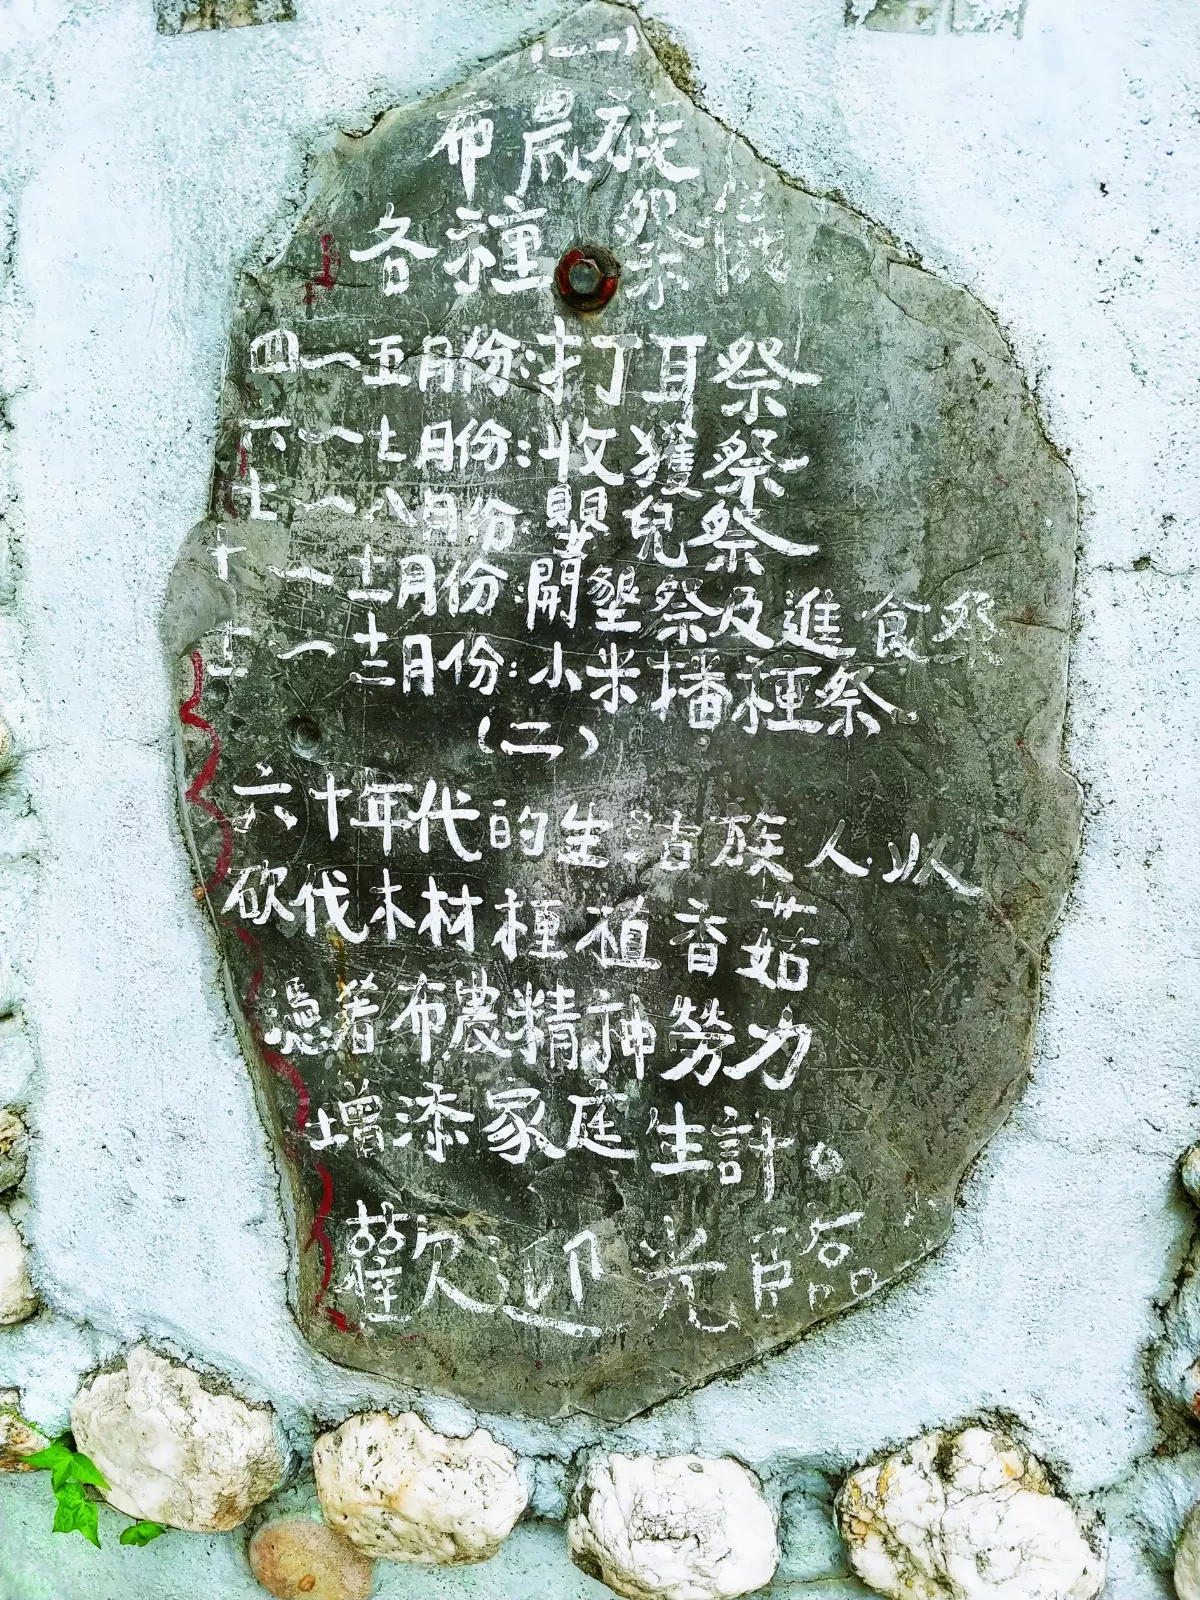 (一)
布農族
各種祭儀
四一五月份:打耳祭
六一七月份:收獲祭
七一八月份:嬰兒祭
十一十一月份:開墾祭及進食祭
十一一十二月份:小米播種祭
(二)
六十年代的生活族人以
砍伐木材種植香菇
憑著布農精神勞力
增添家庭生計。
歡迎光臨